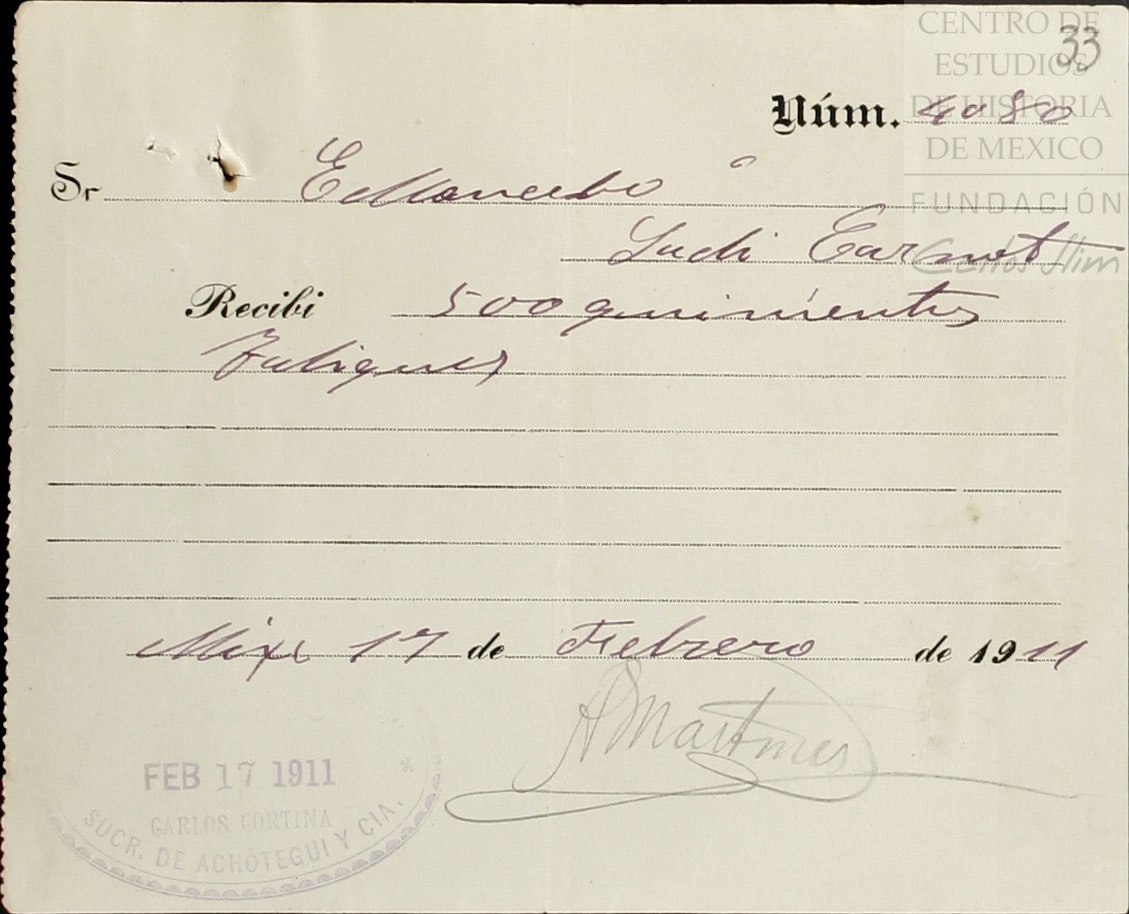 CENTRO DE
33
ESTUDIOS
DE HISTORIA
DE MEXICO
FUNDACIÓN
Carlos Slim
Núm. 4080
Sr E Mancebo
Recibi 500 quinientos
de Febrero de 1911
17
A Martines
FEB 17 1911
CARLOS CORTINA
SUCR. DE ACHOTEGUI Y CIA.